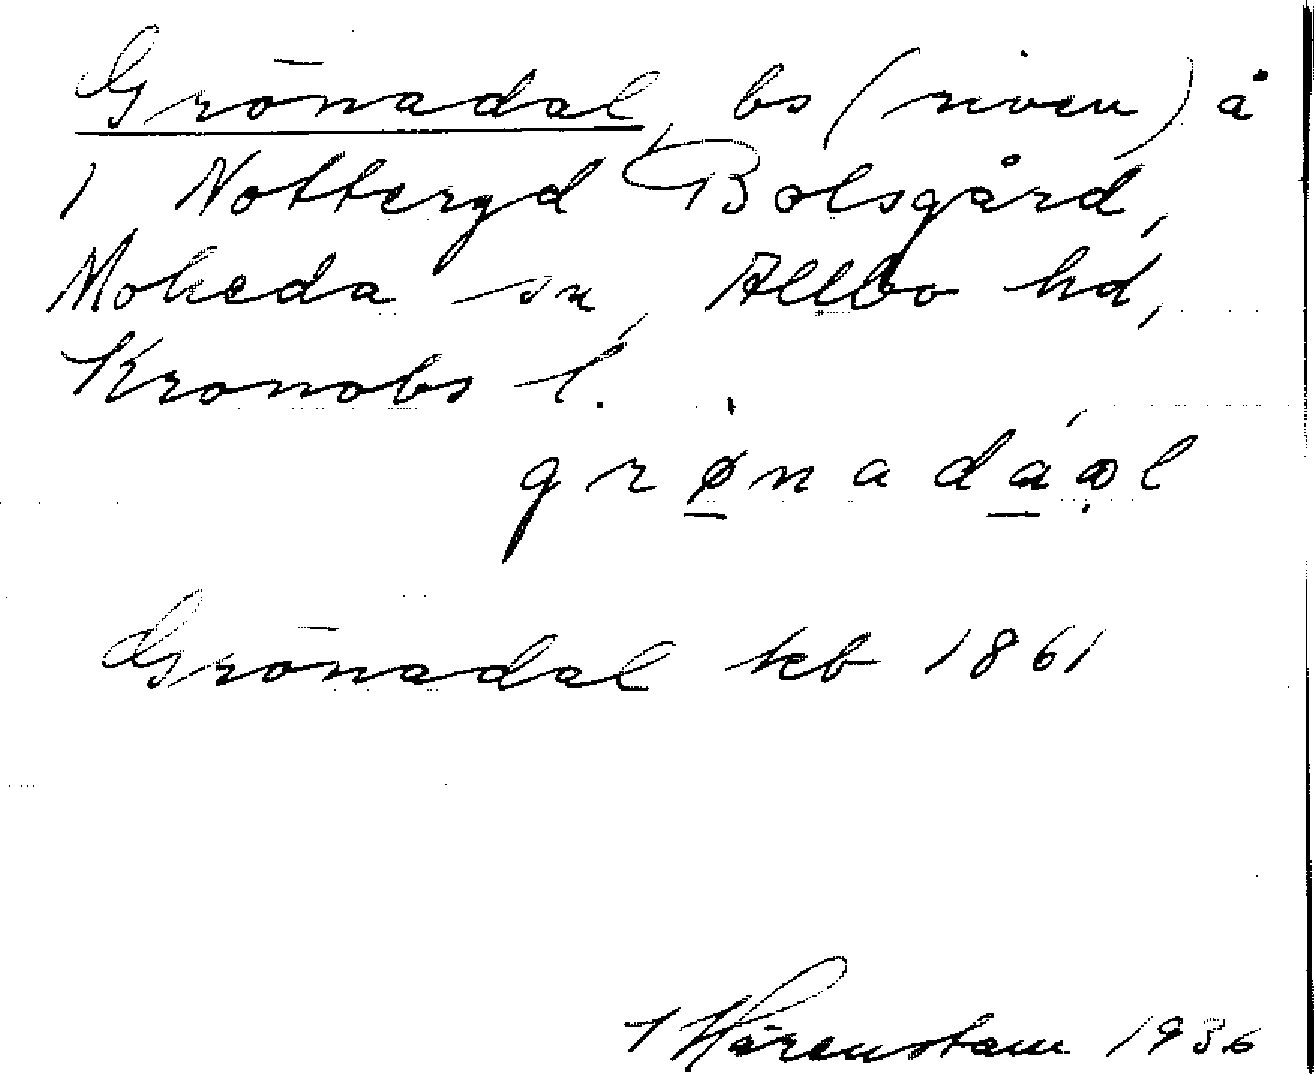 Grönadal, bs (riven) å
1 Nottergd Bolsgård,
Moheda sn, Allbo hd,
Kronobs l.
grønadáωl
Grönadal kb 1861
Härenstam 1936